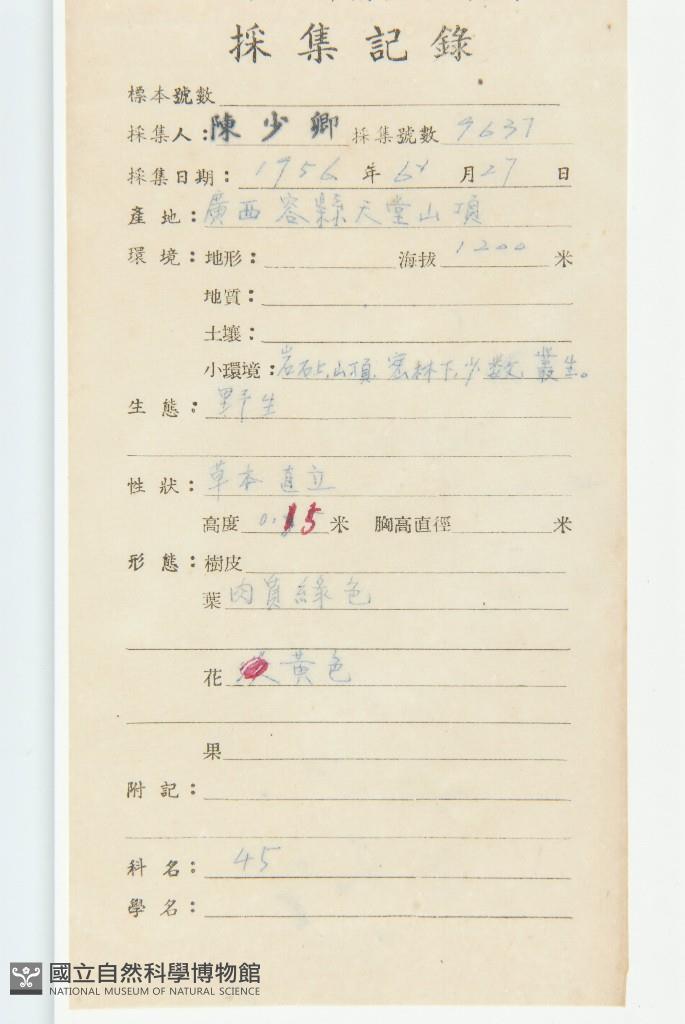 採集記錄
標本號數
採集人：陳少卿 採集號數 9637
採集日期：1956 年 6 月 27 日
產地：廣西容縣天堂山頂
環境：地形： 海拔 1200 米
地質：
土壤：
小環境：岩石上,山頂,密林下,少數,叢生。
生態：野生
性狀：草本 直立
高度 0.15 米 胸高直徑 米
形態：樹皮
葉 肉質綠色
花 黃色
果
附記：
科名：45
學名：
國立自然科學博物館
NATIONAL MUSEUM OF NATURAL SCIENCE